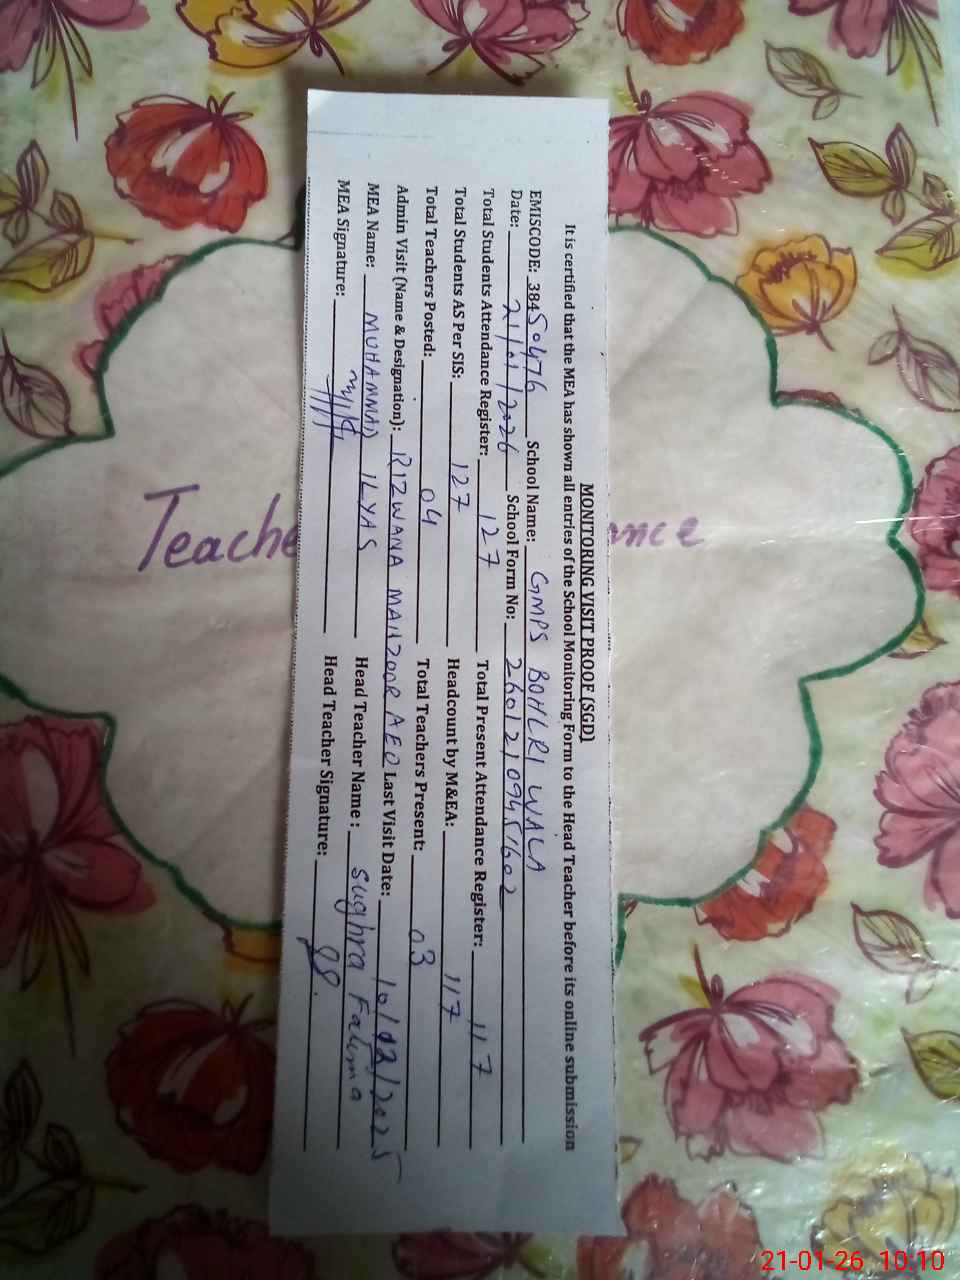 MONITORING VISIT PROOF [SGD]
It is certified that the MEA has shown all entries of the School Monitoring Form to the Head Teacher before its online submission
EMISCODE: 38450476 School Name: GMPS BOHLRI WALA
Date: 21/01/2026 School Form No: 26012109451602
Total Students Attendance Register: 127 Total Present Attendance Register: 117
Total Students AS Per SIS: 127 Headcount by M&EA: 117
Total Teachers Posted: 04 Total Teachers Present: 03
Admin Visit (Name & Designation): RIZWANA MANZOOR AEO Last Visit Date: 10/12/2025
MEA Name: MUHAMMAD ILYAS Head Teacher Name : Sughra Fatima
MEA Signature: Head Teacher Signature:
Teache nce
21-01-26 10:10